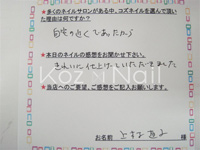 ★多くのネイルサロンがある中、コズネイルを選んで頂い
た理由は何ですか？
自宅の近くであったから
★本日のネイルの感想をお聞かせ下さい。
きれいに仕上げていただきました
★当店へのご要望、ご感想をご記入お願いします。
お名前
様
Koz Nail